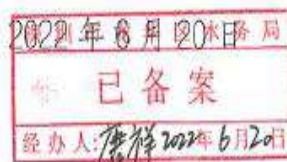 2022年6月20日 水务局
已备案
经办人:唐祥 2022年6月20日